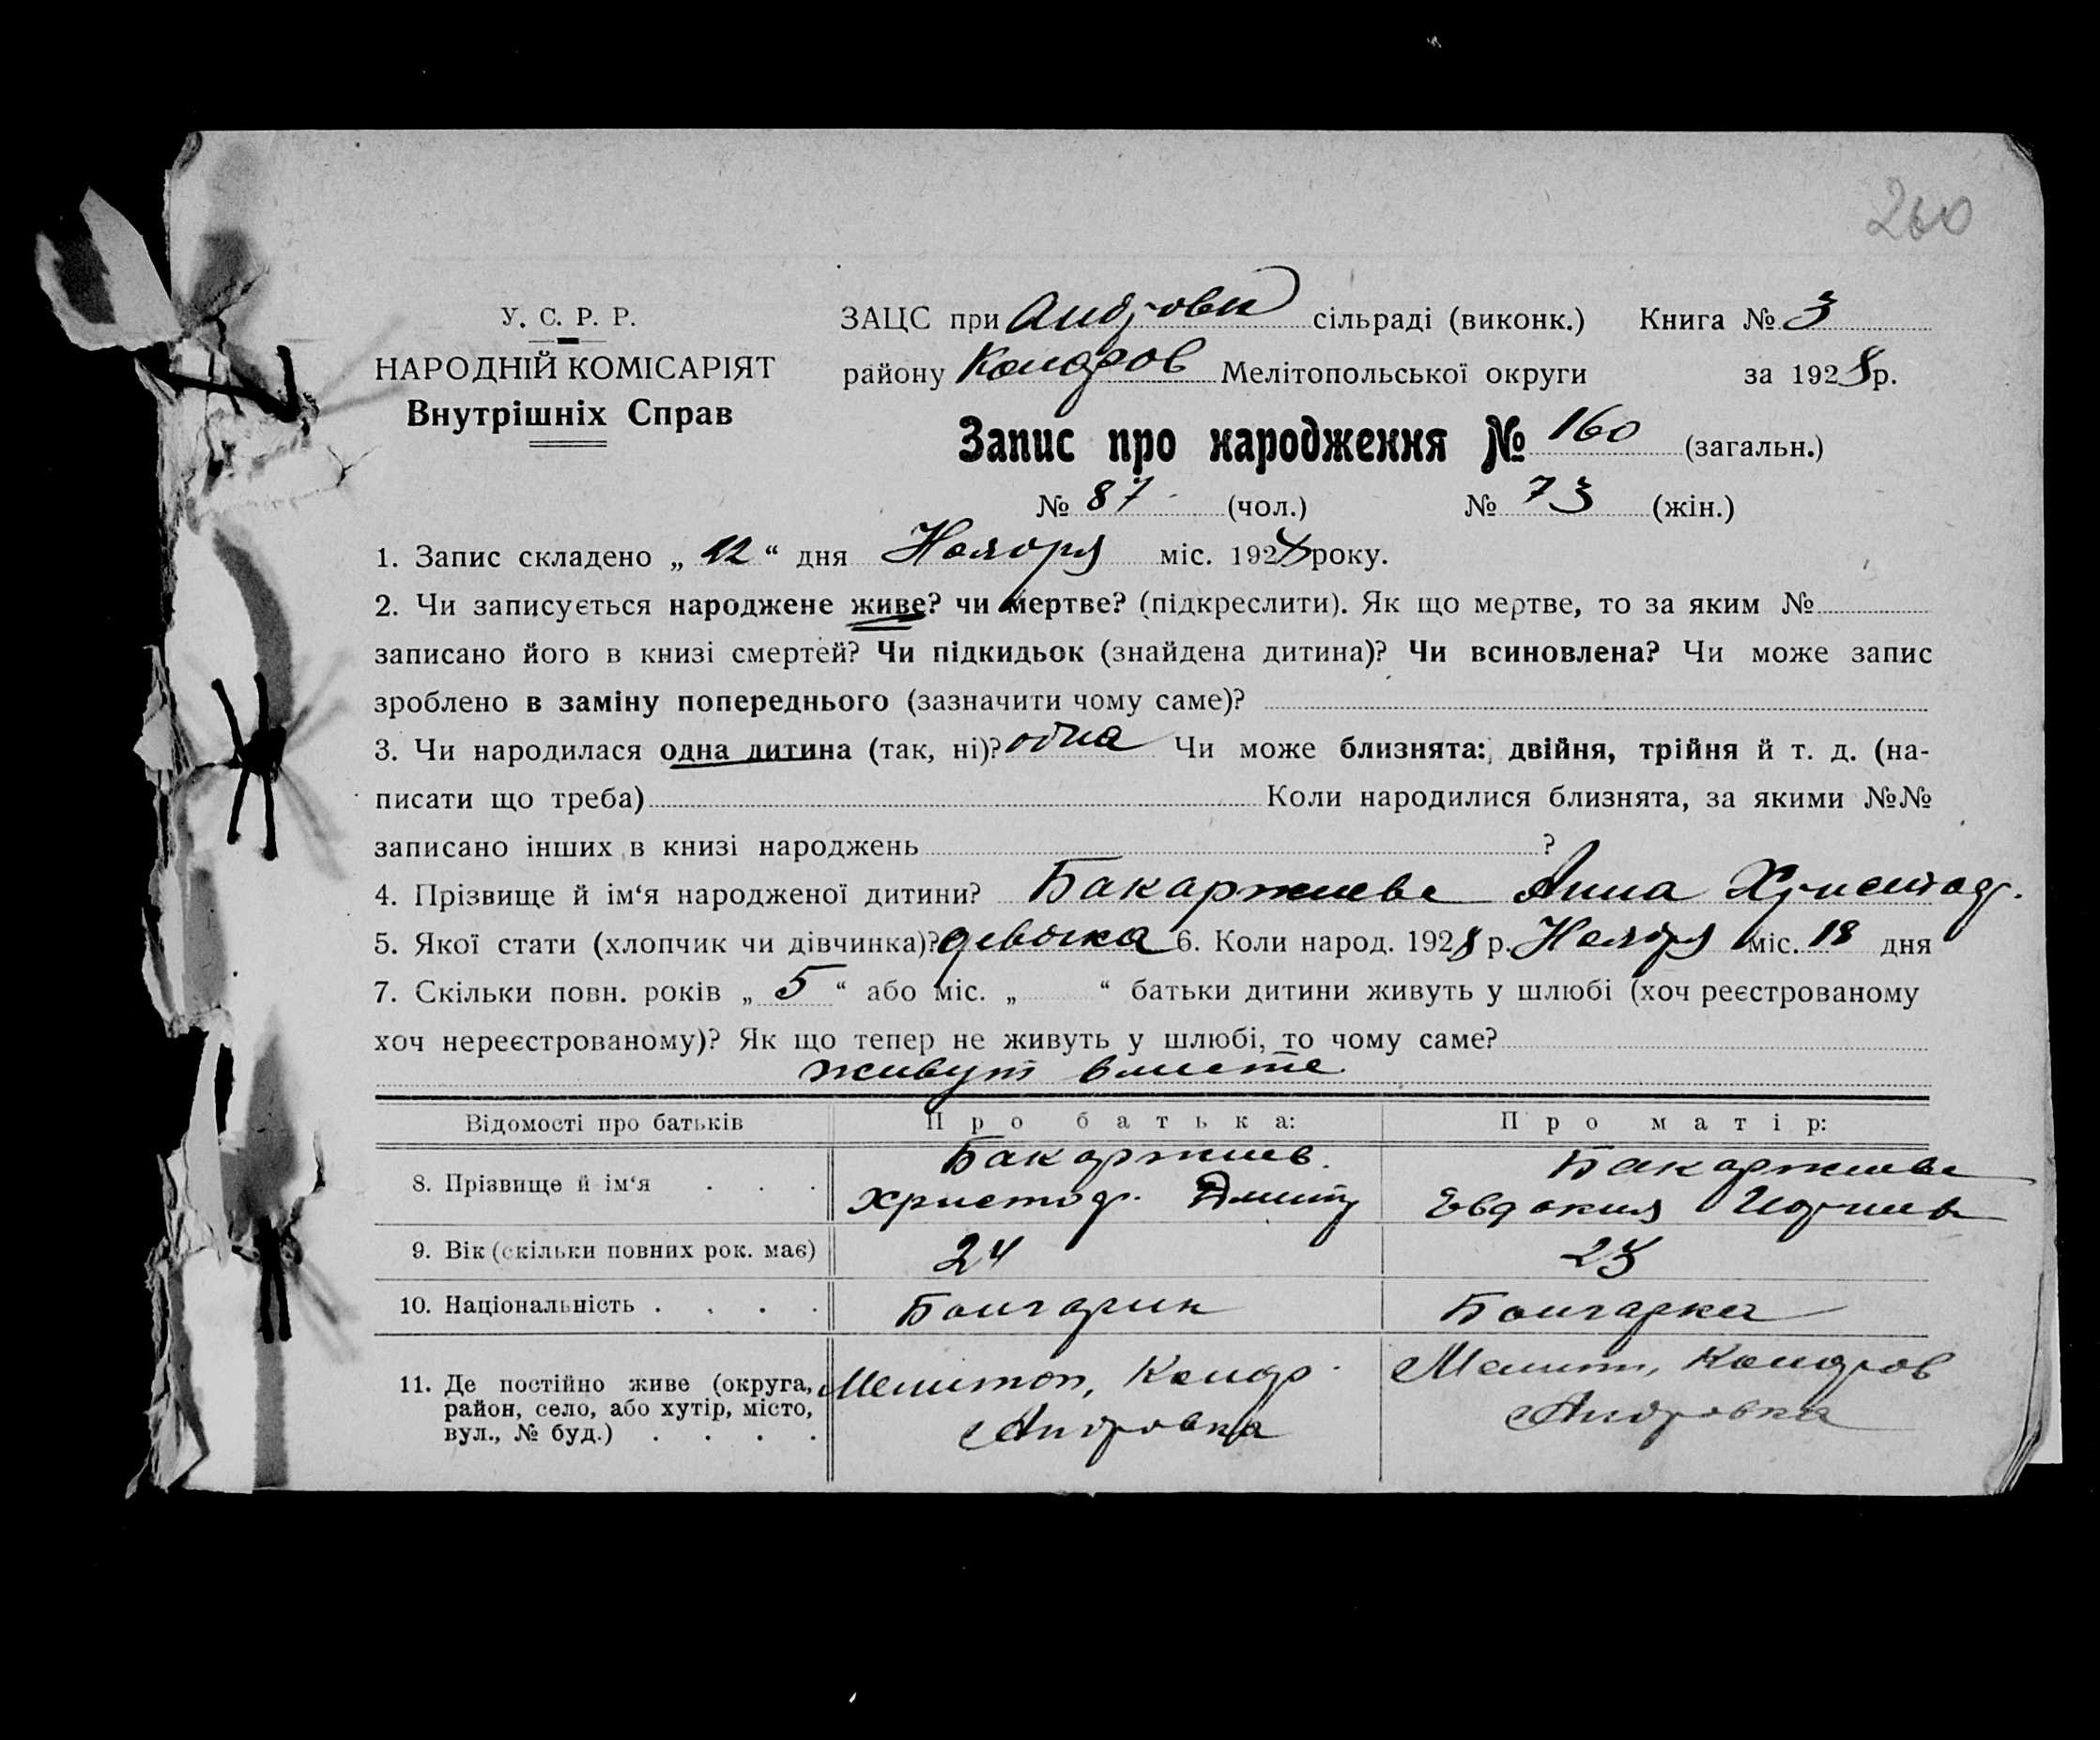 260
У. С. Р. Р.
НАРОДНІЙ КОМІСАРІЯТ
Внутрішніх Справ
ЗАЦС при Андровк сільраді (виконк.) Книга № 3
району Коларов Мелітопольської округи за 1928 р.
Запис про народження № 160 (загальн.)
№ 87 (чол.) № 73 (жін.)
1. Запис складено „ “ дня Ноября міс. 1928 року.
2. Чи записується народжене живе? чи мертве? (підкреслити). Як що мертве, то за яким №
записано його в книзі смертей? Чи підкидьок (знайдена дитина)? Чи всиновлена? Чи може запис
зроблено в заміну попереднього (зазначити чому саме)?
3. Чи народилася одна дитина (так, ні)? одна Чи може близнята: двійня, трійня й т. д. (на-
писати що треба) Коли народилися близнята, за якими №№
записано інших в книзі народжень ?
4. Прізвище й ім‘я народженої дитини? Бакаржиева Анна Христод.
5. Якої стати (хлопчик чи дівчинка)? девочка 6. Коли народ. 1928 р. Ноября міс. 18 дня
7. Скільки повн. років „ 5 “ або міс. „ “ батьки дитини живуть у шлюбі (хоч реєстрованому
хоч нереєстрованому)? Як що тепер не живуть у шлюбі, то чому саме?
живут вместе.
Відомості про батьків Про батька: Про матір:
8. Прізвище й ім‘я . . . Бакаржиев. Христод. Дмитр Бакаржиева Евдокия
9. Вік (скільки повних рок. має) 24 23
10. Національність . . . . Болгарин Болгарка
11. Де постійно живе (округа, Мелитоп, Колар. Мелит, Коларов
район, село, або хутір, місто, Андровка Андровка
вул., № буд.) . . . .